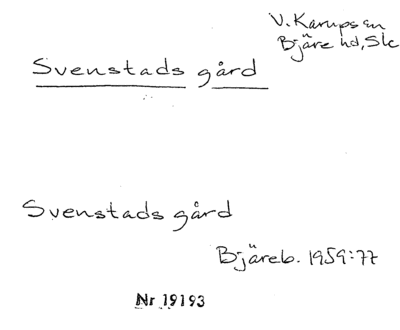 V. Karups sn
Bjäre hd, Sk
Svenstads gård
Svenstads gård
Bjäreb. 1959:77
Nr 19193